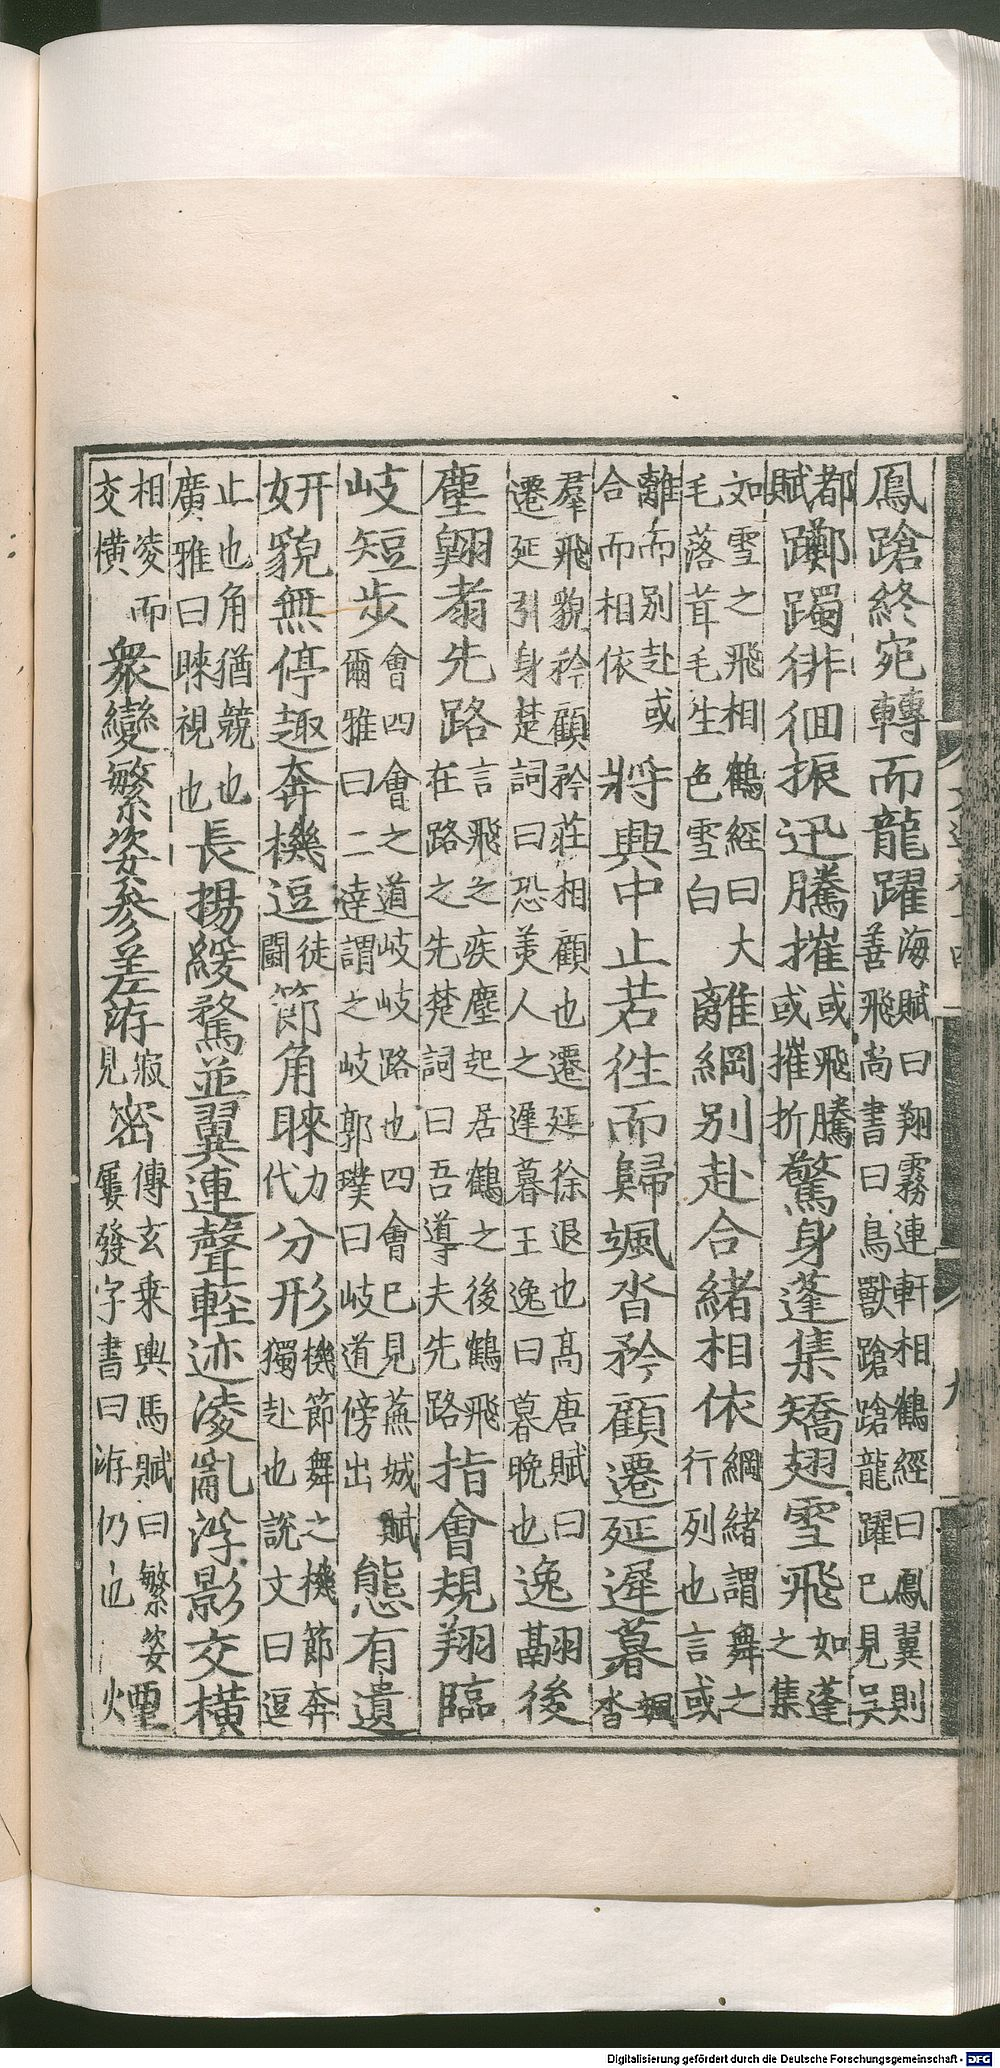 鳳蹌終宛轉而龍躍海賦曰翔霧連軒相鶴經曰鳳翼則善飛尚書曰鳥獸蹌蹌龍躍已見吳
都賦躑躅徘徊振迅騰摧或飛騰或摧折驚身蓬集矯翅雪飛如蓬之集
如雪之飛相鶴經曰大毛落茸毛生色雪白離綱別赴合緒相依綱緒謂舞之行列也言或
離而別赴或合而相依將興中止若徃而歸颯沓矜顧遷延遲暮颯沓
羣飛貌矜顧矜莊相顧也遷延徐退也高唐賦曰遷延引身楚詞曰恐美人之遲暮王逸曰暮晚也逸翮後
塵翺翥先路言飛之疾塵起居鶴之後鶴飛在路之先楚詞曰吾導夫先路指會規翔臨
岐短步會四會之道岐岐路也四會已見蕪城賦爾雅曰二達謂之岐郭璞曰岐道傍出態有遺
妍貌無停趣奔機逗徒鬭節角睞力代分形機節舞之機節奔獨赴也說文曰逗
止也角猶競也廣雅曰睞視也長揚緩騖並翼連聲輕迹淩亂浮影交橫
相淩而交橫衆變繁姿參差洊寂見密傳玄乗輿馬賦曰繁姿屢發字書曰洊仍也煙
Digitalisierung gefördert durch die Deutsche Forschungsgemeinschaft - DFG